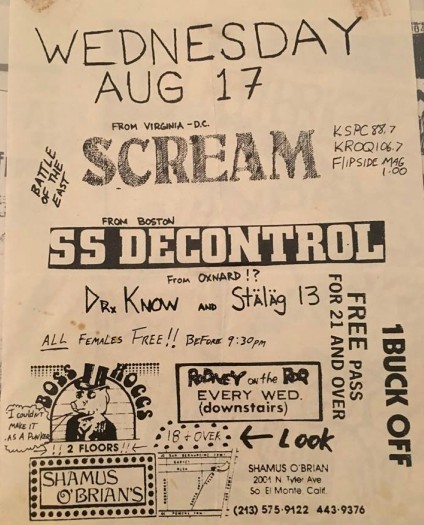 WEDNESDAY
AUG 17
FROM VIRGINIA - D.C.
SCREAM
BATTLE
OF THE
EAST
KSPC 88.7
KROQ 106.7
FlIPSIDE MAG
1.00
FROM BOSTON
SS DECONTROL
FROM OXNARD!?
DRx KNOW AND Stäläg 13
ALL FEMALES FREE!! BEFORE 9:30pm
FREE PASS
FOR 21 AND OVER
1 BUCK OFF
BOSS HOGGS
I COULDN'T
MAKE IT
AS A PUNKER
!! 2 FLOORS !!
RODNEY on the ROQ
EVERY WED.
(downstairs)
18 + OVER
← LOOK
SHAMUS
O'BRIAN'S
SHAMUS O'BRIAN
2001 N. Tyler Ave
So. El Monte, Calif.
(213) 575-9122 443-9376